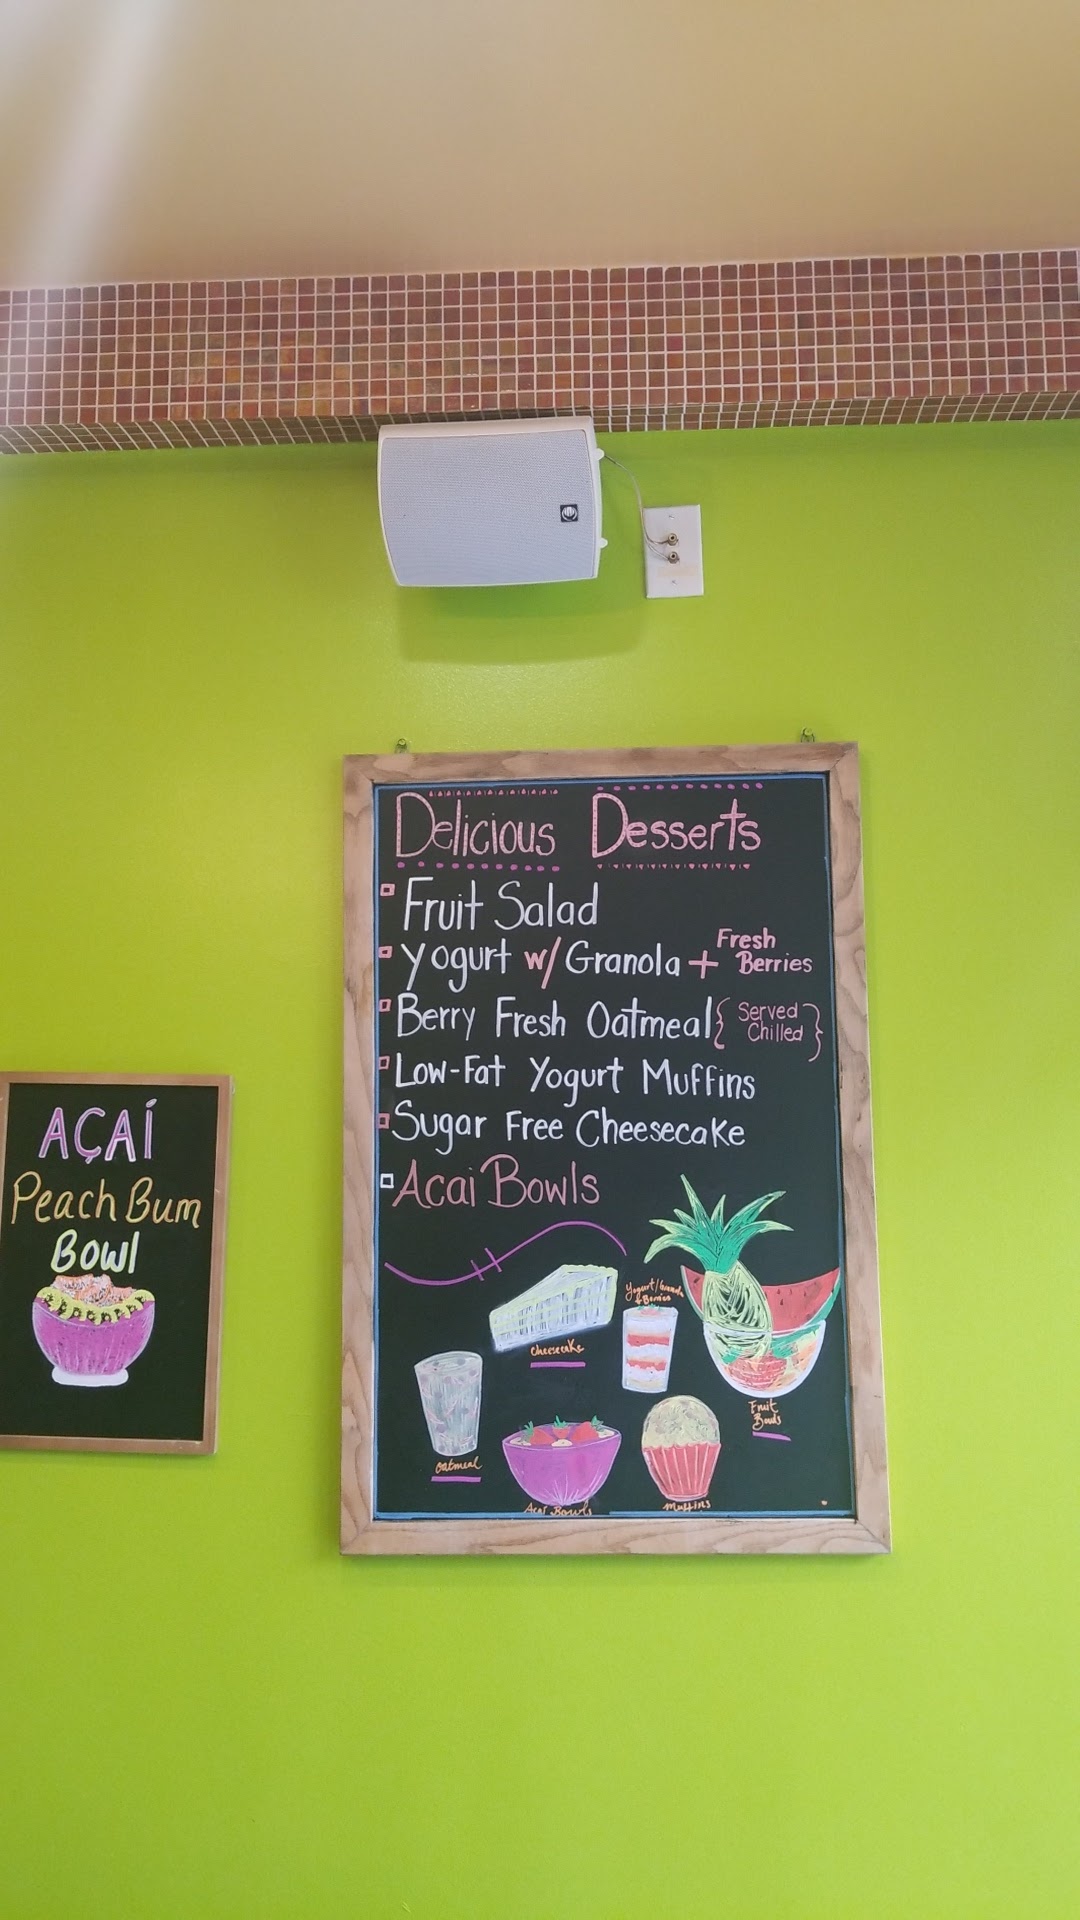 Delicious Desserts
Fruit Salad
Yogurt w/ Granola + Fresh Berries
Berry Fresh Oatmeal { Served Chilled }
Low-Fat Yogurt Muffins
Sugar Free Cheesecake
Acai Bowls
Cheesecake
Yogurt/Granola
+ Berries
Fruit
Bowls
Oatmeal
Acai Bowls
Muffins
AÇAÍ
Peach Bum
Bowl